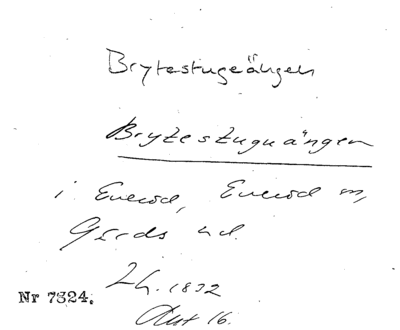 Brytestugeängen
Brytestuguängen
i Everöd, Everöd sn,
Gärds hd.
Lh. 1832
Akt 16.
Nr 7324.